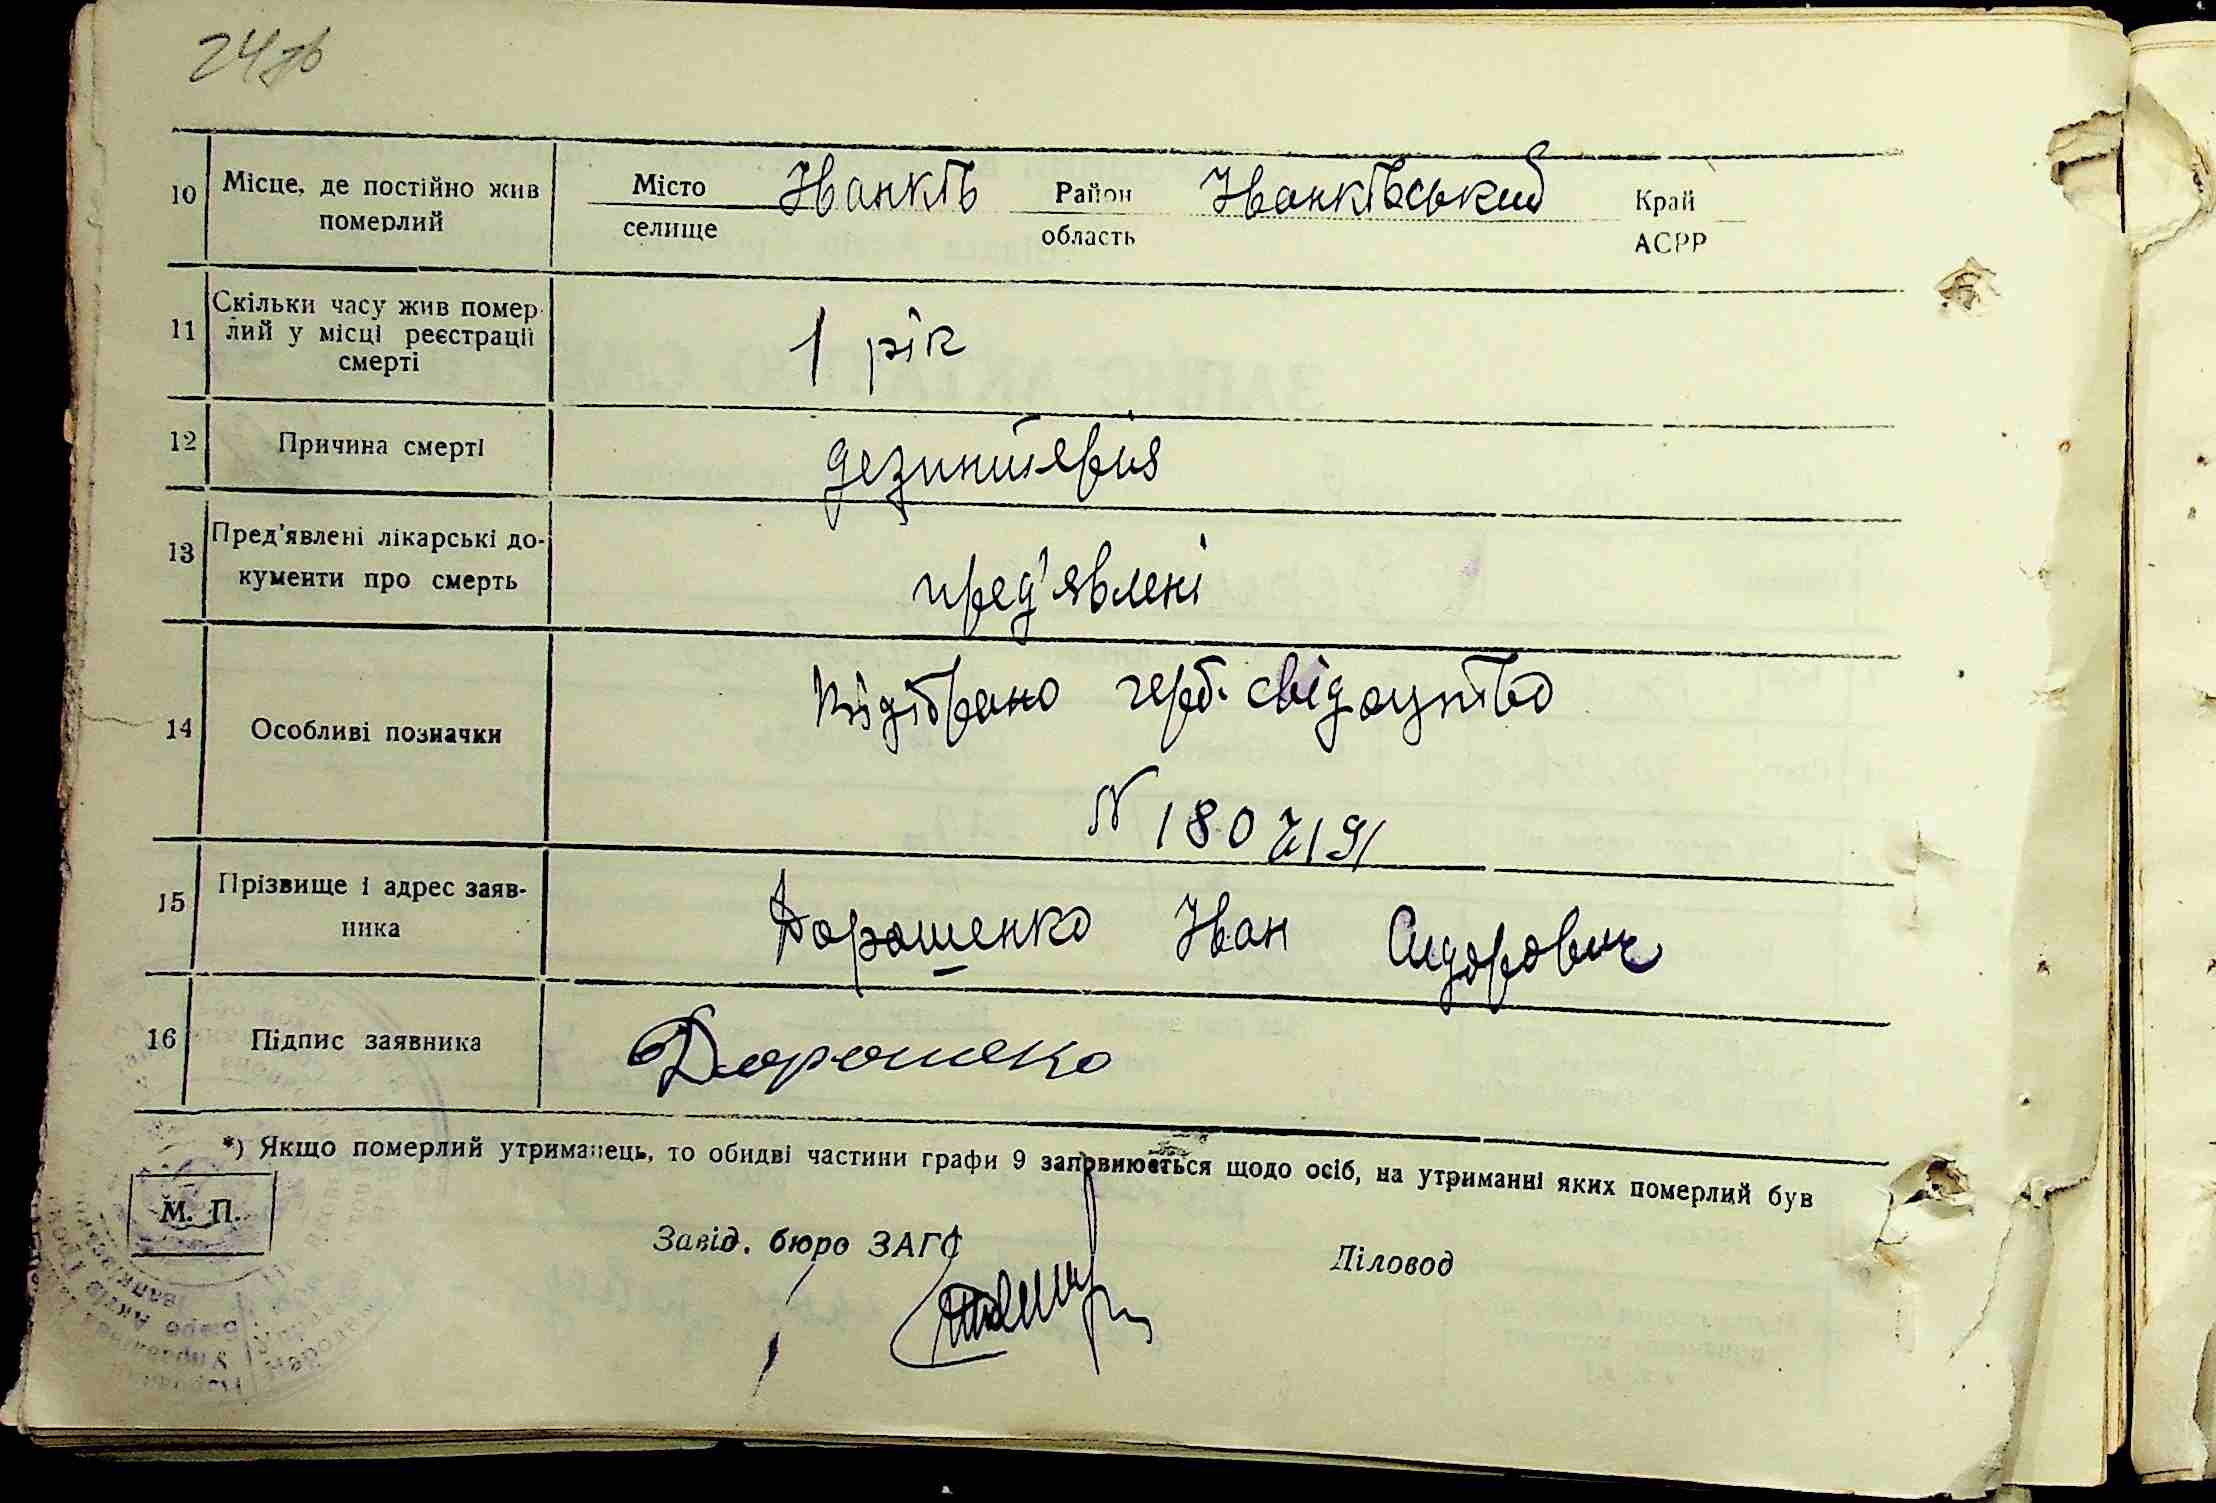 24зв
10 Місце, де постійно жив Місто Іванків Район Іванківський Край
померлий селище область АСРР
11 Скільки часу жив помер-
лий у місці реєстрації 1 рік
смерті
12 Причина смерті дезинтерія
13 Пред'явлені лікарські до-
кументи про смерть пред'явлені
14 Особливі позначки Відібрано герб. свідоцтво
N 180719/
15 Прізвище і адрес заяв- Дорошенко Іван Сидорович
ника
16 Підпис заявника Дорошеко
*) Якщо померлий утриманець, то обидві частини графи 9 заповнюється щодо осіб, на утриманні яких померлий був
М. П.
Завід. бюро ЗАГС Діловод